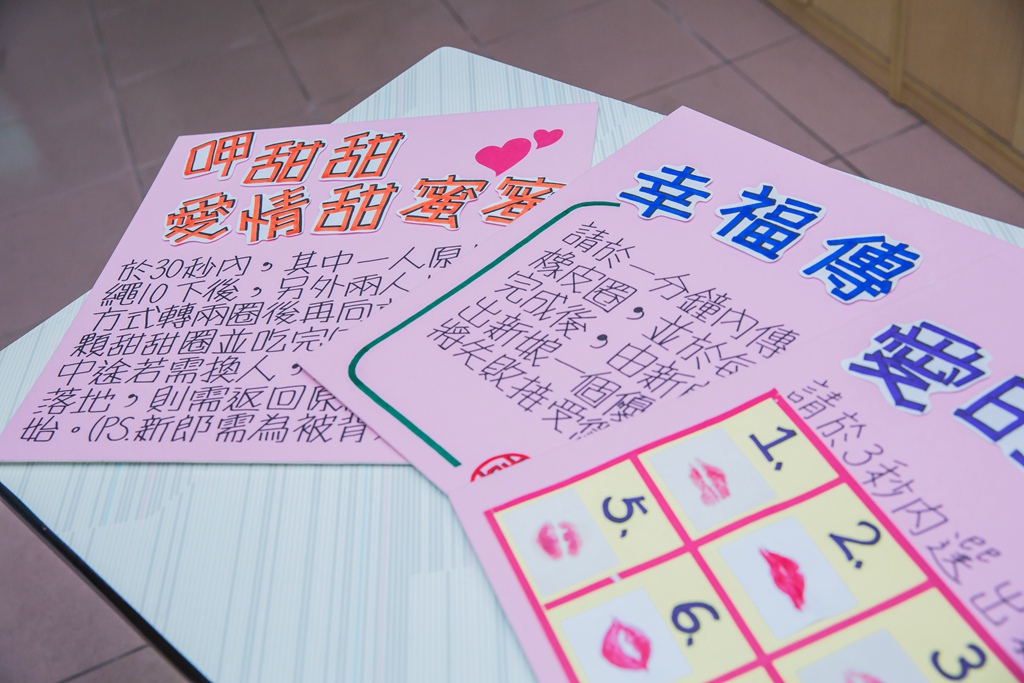 呷甜甜
愛情甜蜜蜜
於30秒內，其中一人原
繩10下後，另外兩人
方式轉兩圈後再向
顆甜甜圈並吃完
中途若需換人，
落地，則需返回原
始。(PS.新郎需為被背
幸福傳
請於一分鐘內傳
橡皮圈，並於
完成後，由新
出新娘一個優
將失敗接受
愛的
請於3秒內選出
1.
2.
3
5.
6.